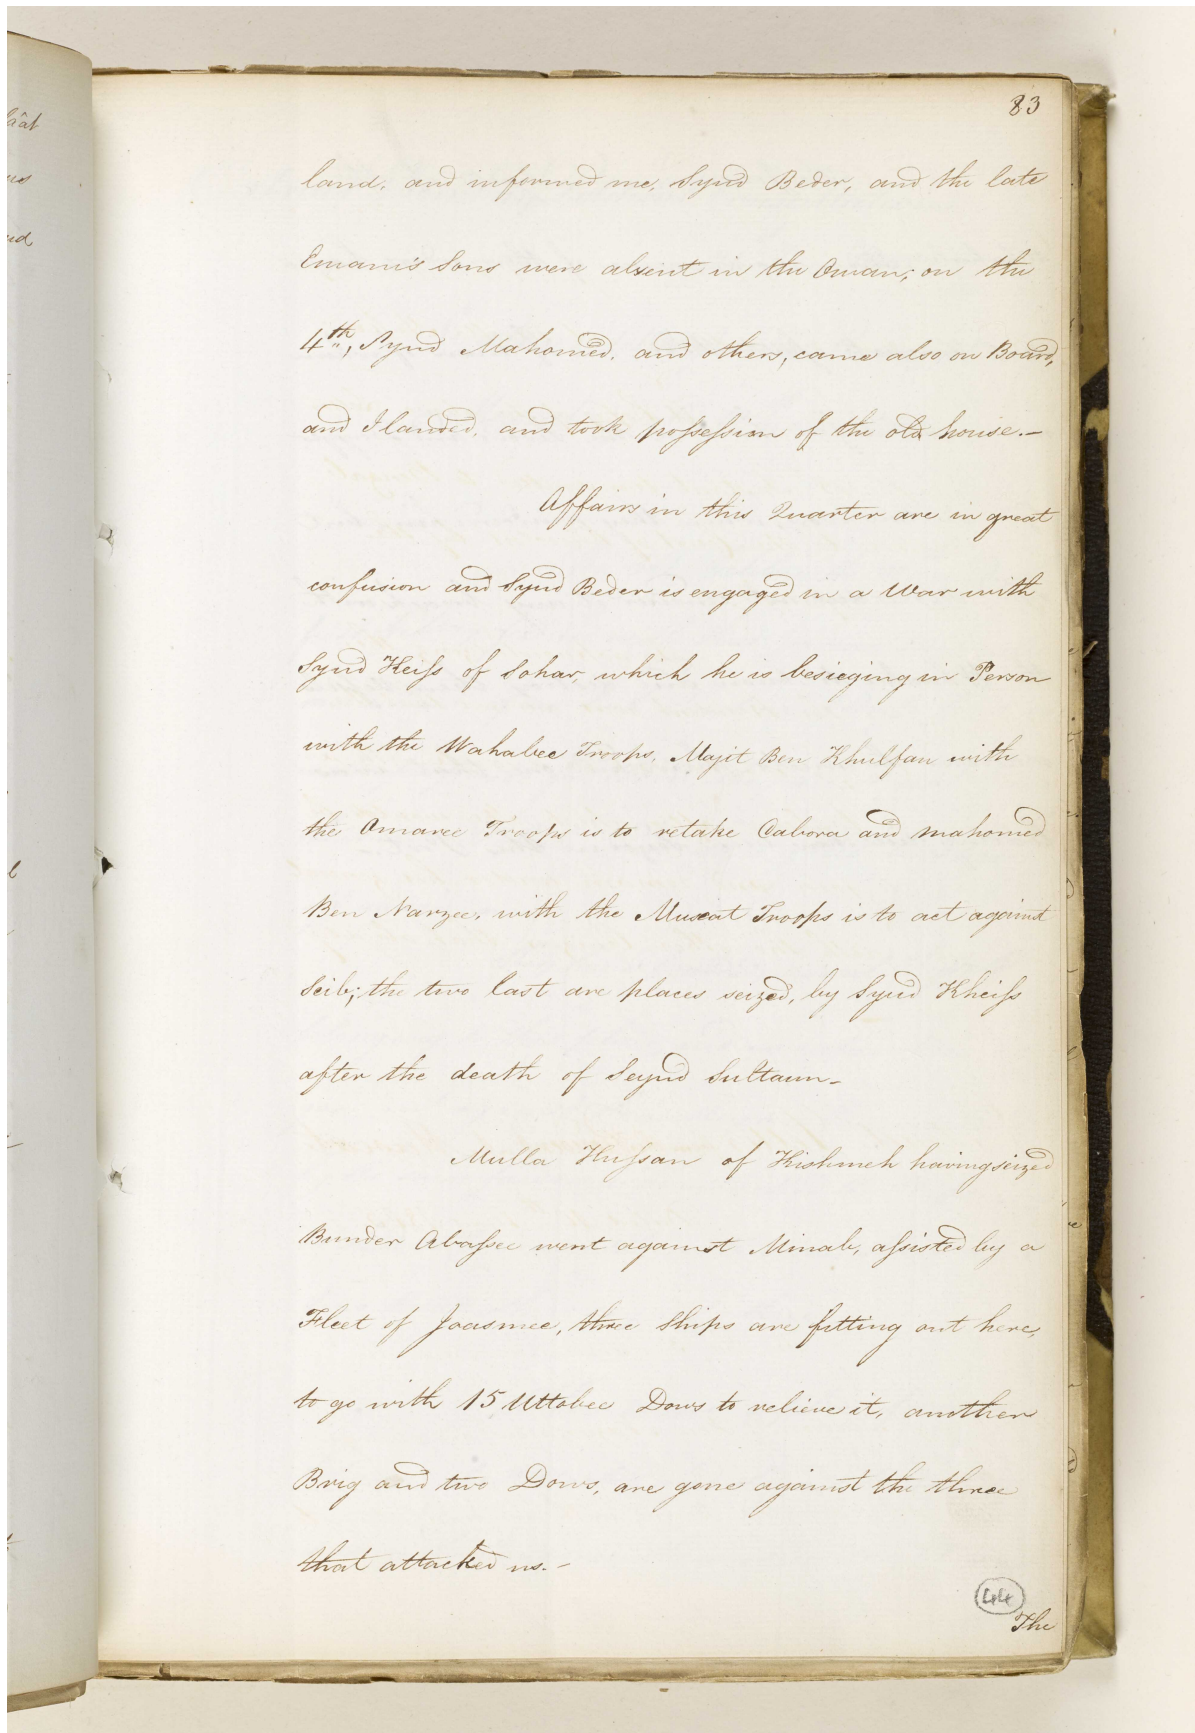 83
land, and informed me, Syud Beder, and the late
Emam's Sons were absent in the Oman; on the
4th, Syud Mahomed, and others, came also on Board,
and I landed, and took possession of the old house.—
Affairs in this Quarter are in great
confusion and Syud Beder is engaged in a War with
Syud Keiss of Sohar, which he is besieging in Person
with the Wahabee Troops, Majit Ben Khulfan with
the Omaree Troops is to retake Cabora and mahomed
Ben Narzee, with the Muscat Troops is to act against
Seib; the two last are places seized, by Syud Kheiss
after the death of Seyud Sultaun—
Mulla Hussan of Kishmeh having seized
Bunder Abassee went against Minab, assisted by a
Fleet of Joasmee, three Ships are fitting out here,
to go with 15 Uttobee Dows to relieve it, another
Brig and two Dows, are gone against the three
that attacked us.—
44
The